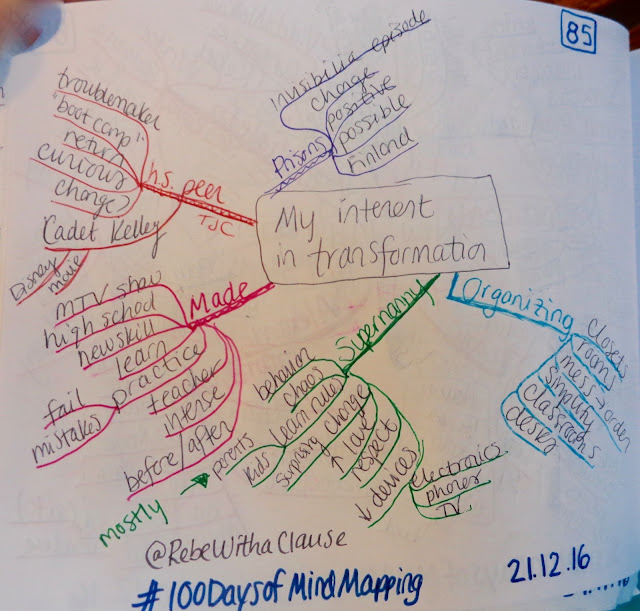 85
My interest
in transformation
Prisons
Invisibilia episode
change
positive
possible
Finland
h.s. peer
TJC
troublemaker
"boot camp"
return
curious
change?
Cadet Kelley
Disney
movie
Made
MTV show
high school
new skill
learn
practice
fail
mistakes
teacher
intense
before/after
Supernanny
behavior
chaos
learn rules
parents
kids
mostly
surprising change
↑ love
respect
↓ devices
electronics
phones
TV
Organizing
closets
rooms
mess → order
simplify
classrooms
design
@RebeWithaClause
#100DaysofMindMapping
21.12.16